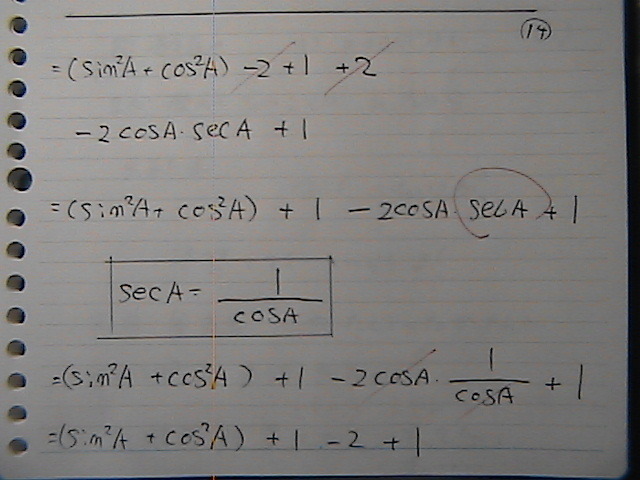 14
=(sin²A + cos²A) -2 +1 +2
-2cosA·secA +1
=(sin²A + cos²A) +1 -2cosA·secA +1
secA = 1/cosA
=(sin²A + cos²A) +1 -2cosA·1/cosA +1
=(sin²A + cos²A) +1 -2 +1